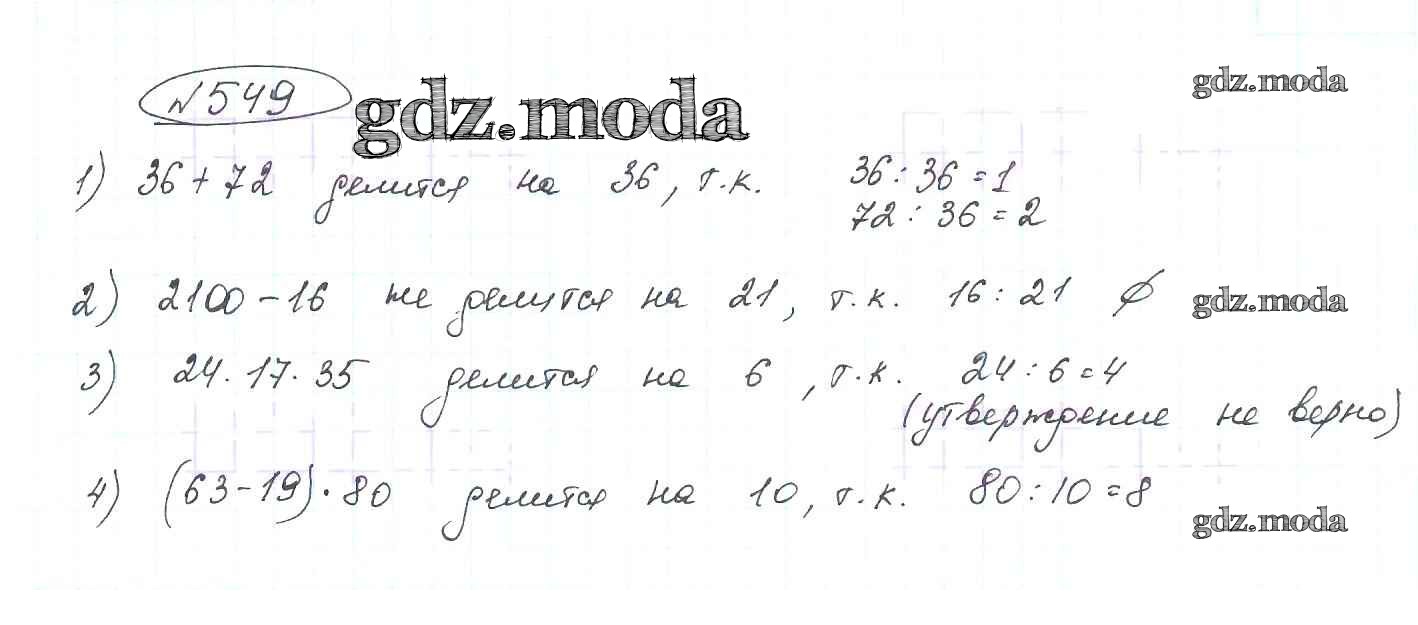 №549 gdz.moda gdz.moda
1) 36 + 72 делится на 36, т.к. 36 : 36 = 1
72 : 36 = 2
2) 2100 - 16 не делится на 21, т.к. 16 : 21 ∅ gdz.moda
3) 24 · 17 · 35 делится на 6, т.к. 24 : 6 = 4
(утверждение не верно)
4) (63 - 19) · 80 делится на 10, т.к. 80 : 10 = 8
gdz.moda